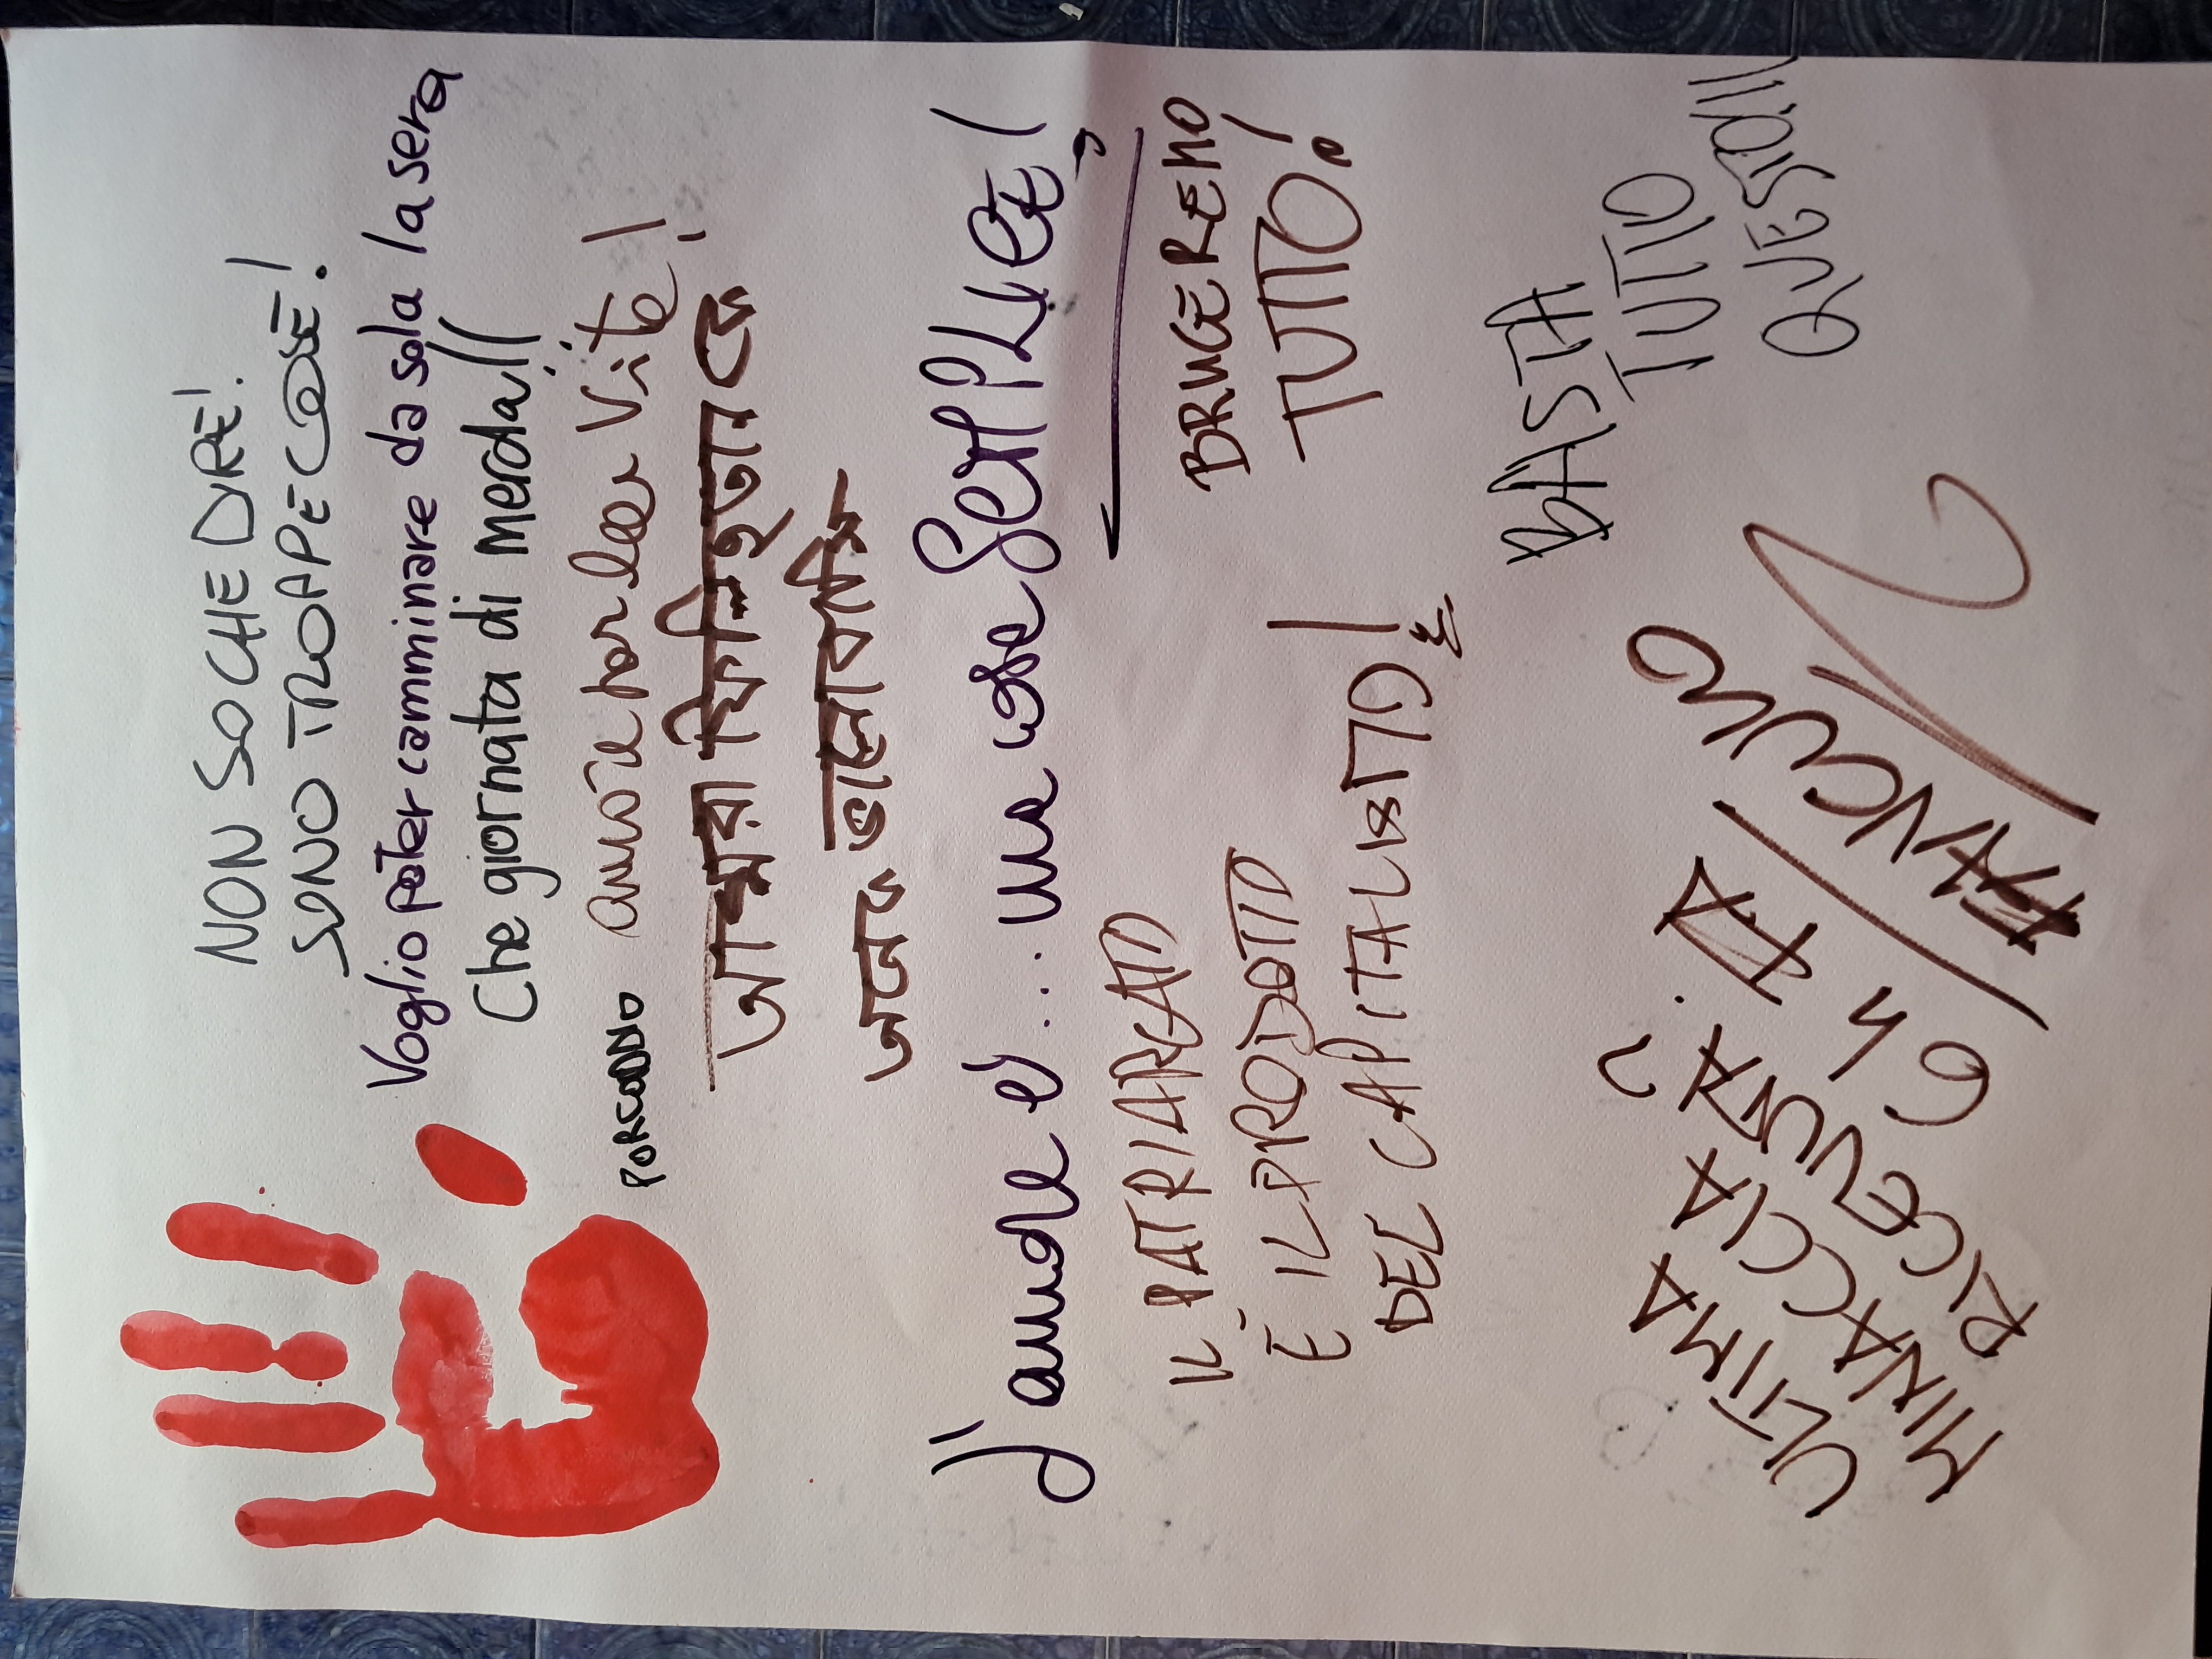 NON SO CHE DIRE!
SONO TROPPE COSE!
Voglio poter camminare da sola la sera
Che giornata di merda!!
PORCODDIO amore for lee vite!
আমরা ফিলিস্তিন কে
অনেক ভালোবাসি
J'amore è... una cosa SEMPLICE!
IL PATRIARCATO
È IL PRODOTTO
DEL CAPITALISMO!
BRUCEREMO
TUTTO!
BASTA
TUTTO
QUESTO!!!
ULTIMA
MINACCIA
RICEVUTA?
6 h FA
FANCULO